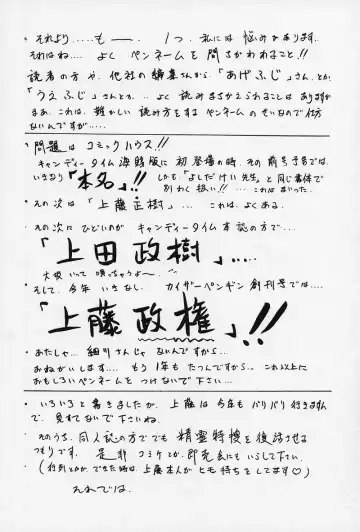 ・それより……も――. 1つ、私には悩みがあります.
それはね…. よく ペンネームを間ちがわれること!!
読者の方や、他社の編集さんから、「あげふじ」さん、とか、
「うえふじ」さんとか.. よく 読みまちがえられることは ありますが
まあ、これは、難かしい 読み方をする ペンネームの せいなので仕方
ないんですが.....
・問題は コミックハウス!!
キャンディータイム海賊版に 初登場の時、その前号予告では、
いきなり「本名」!! しかも「よしだけい先生」と同じ事件で
別わく扱い!! … これはまいった.
・その次は「上藤正樹」… これは、よくある.
・その次にひどいのが キャンディータイム本誌の方で…
「上田政樹」.....
大抵いって 唄っちゃうよ~.
・そして、今年 いきなし、カイザーペンギン創刊号では….
「上藤政権」!!
・あたしゃ… 細川さんじゃ ないんですから..
おねがいします…. もう1年も たつんですから… これ以上に
おもしろいペンネームを つけないで下さい…
・いろいろと書きましたが、上藤は今年もバリバリ行きますん
で、見すてないで下さいね.
・そのうち、同人誌の方ででも 精霊特捜を復活させる
つもりです. 是非 コミケとか、即売会にもいらして下さい.
・(行列とかが、できた時は、上藤本人が ヒモ持ちをしてます♡)
それでは.